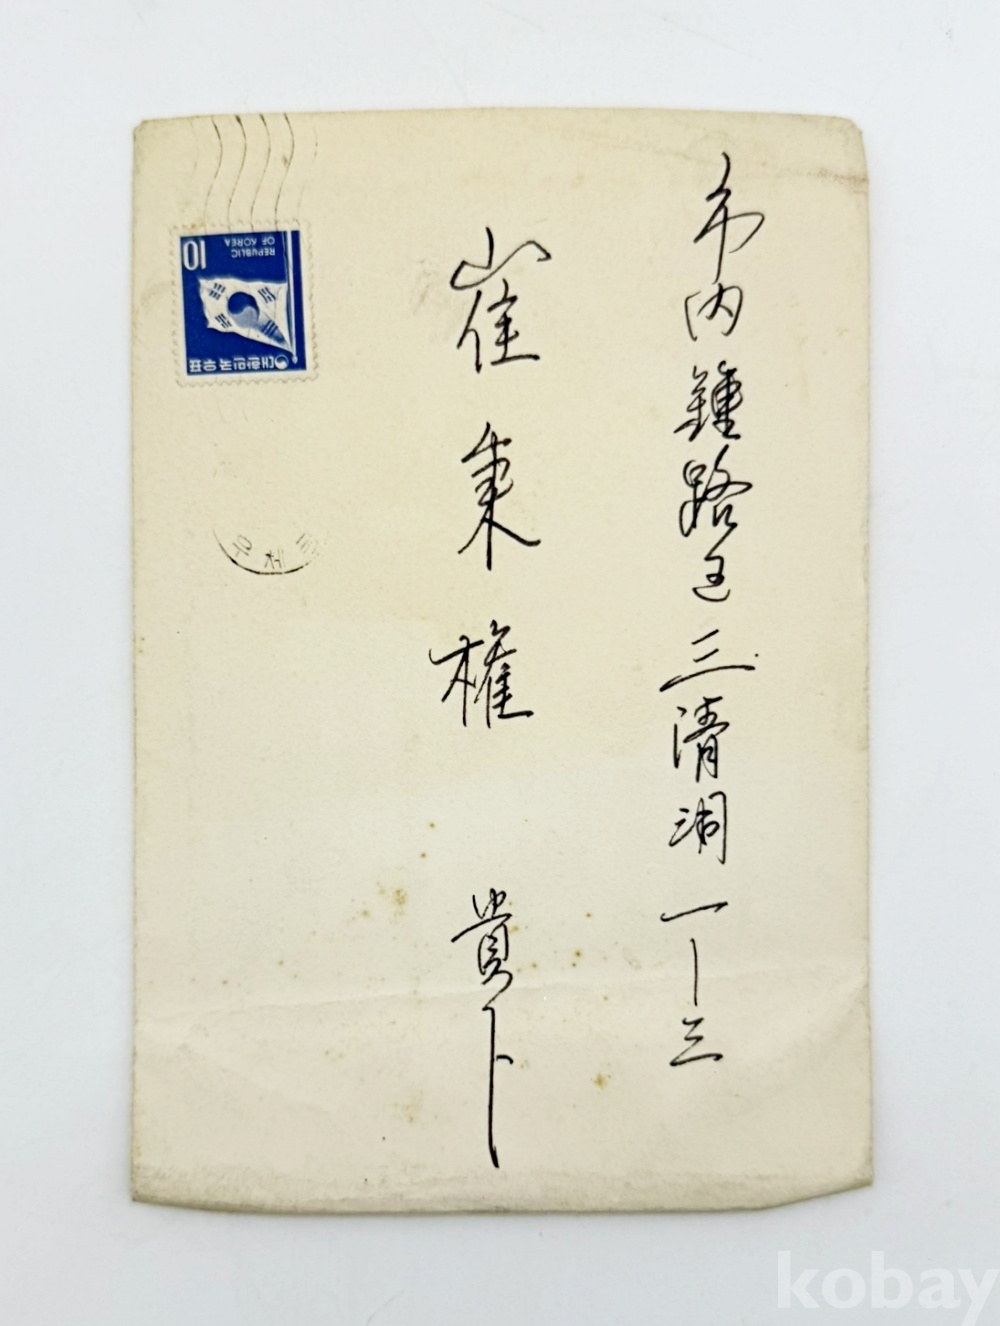 市内鍾路区三清洞一ー三
崔東權 貴下
10
REPUBLIC
OF KOREA
대한민국우표
kobay